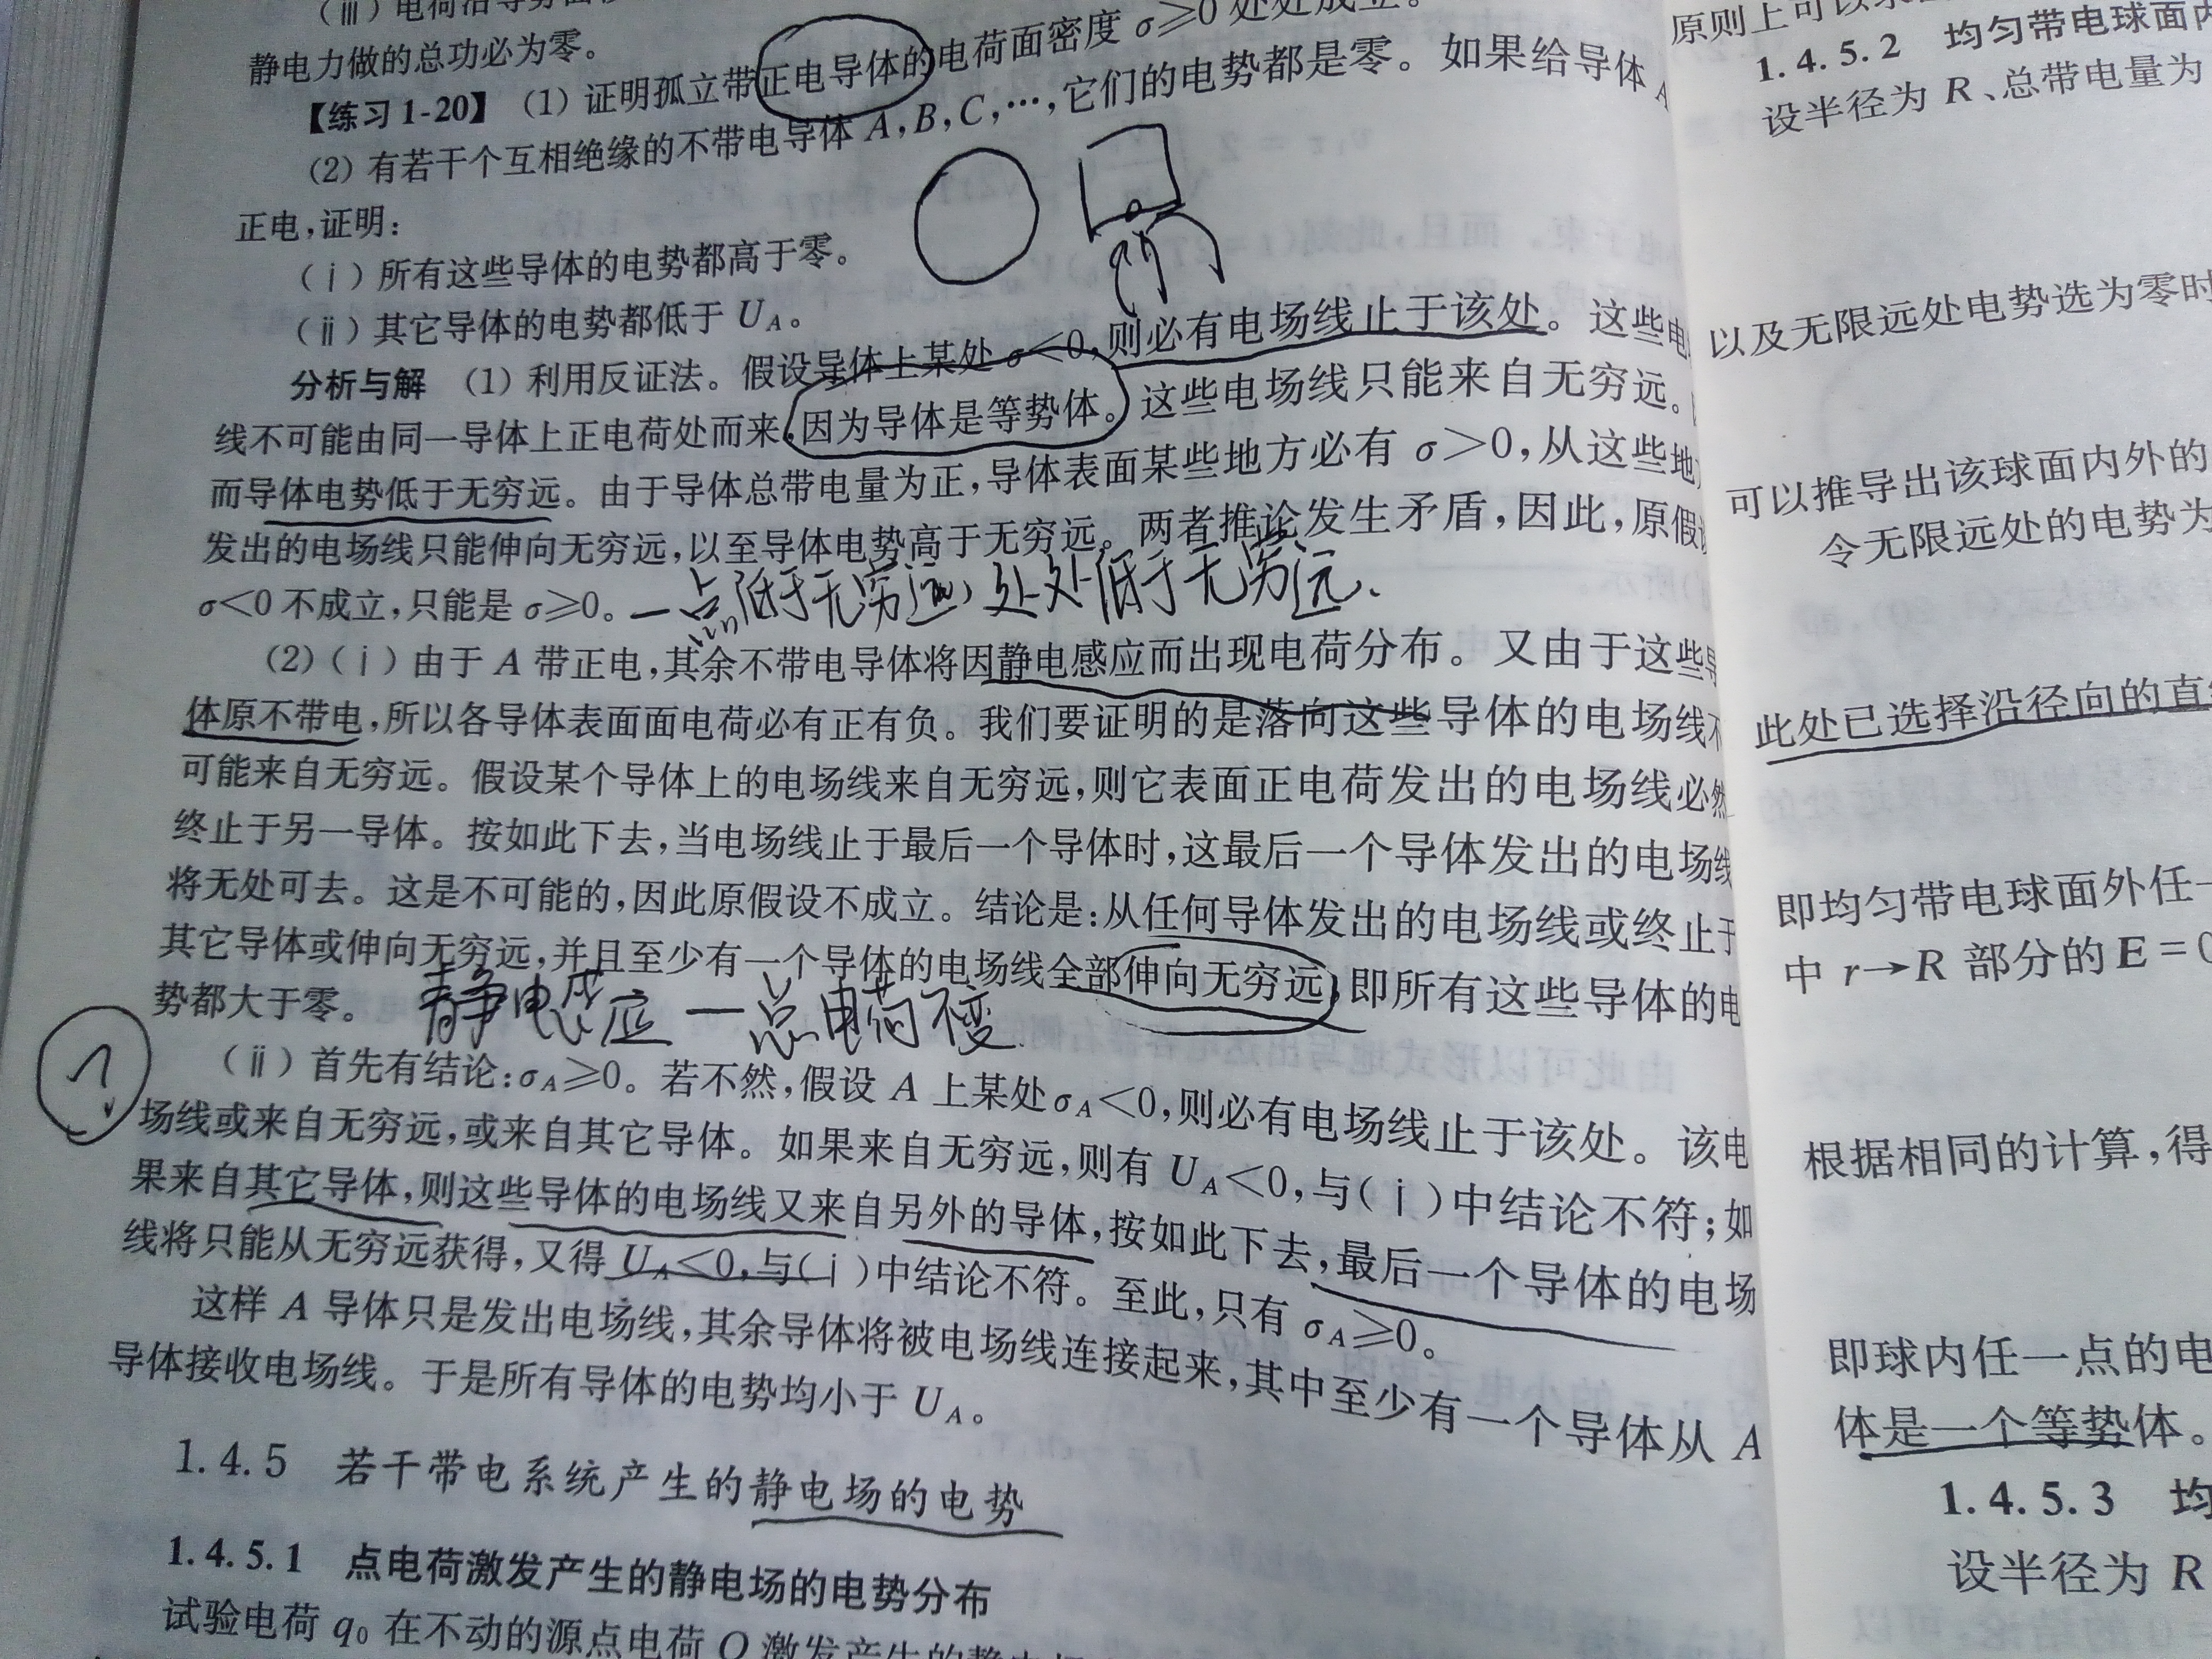 静电力做的总功必为零。
【练习1-20】 (1) 证明孤立带正电导体的电荷面密度 σ≥0 处处成立。
(2) 有若干个互相绝缘的不带电导体 A,B,C,…,它们的电势都是零。如果给导体 A
正电,证明:
(ⅰ)所有这些导体的电势都高于零。
(ⅱ)其它导体的电势都低于 U_A。
分析与解 (1) 利用反证法。假设导体上某处 σ<0,则必有电场线止于该处。这些电
线不可能由同一导体上正电荷处而来,因为导体是等势体。这些电场线只能来自无穷远。
而导体电势低于无穷远。由于导体总带电量为正,导体表面某些地方必有 σ>0,从这些地
发出的电场线只能伸向无穷远,以至导体电势高于无穷远。两者推论发生矛盾,因此,原假
σ<0 不成立,只能是 σ≥0。
一点低于无穷远,处处低于无穷远.
(2)(ⅰ)由于 A 带正电,其余不带电导体将因静电感应而出现电荷分布。又由于这些导
体原不带电,所以各导体表面面电荷必有正有负。我们要证明的是落向这些导体的电场线不
可能来自无穷远。假设某个导体上的电场线来自无穷远,则它表面正电荷发出的电场线必然
终止于另一导体。按如此下去,当电场线止于最后一个导体时,这最后一个导体发出的电场线
将无处可去。这是不可能的,因此原假设不成立。结论是:从任何导体发出的电场线或终止于
其它导体或伸向无穷远,并且至少有一个导体的电场线全部伸向无穷远,即所有这些导体的电
势都大于零。
静电感应 — 总电荷不变.
(ⅱ)首先有结论:σ_A≥0。若不然,假设 A 上某处σ_A<0,则必有电场线止于该处。该电
场线或来自无穷远,或来自其它导体。如果来自无穷远,则有 U_A<0,与(ⅰ)中结论不符;如
果来自其它导体,则这些导体的电场线又来自另外的导体,按如此下去,最后一个导体的电场
线将只能从无穷远获得,又得 U_A<0,与(ⅰ)中结论不符。至此,只有 σ_A≥0。
这样 A 导体只是发出电场线,其余导体将被电场线连接起来,其中至少有一个导体从 A
导体接收电场线。于是所有导体的电势均小于 U_A。
1.4.5 若干带电系统产生的静电场的电势
1.4.5.1 点电荷激发产生的静电场的电势分布
试验电荷 q₀ 在不动的源点电荷 Q 激发产生的静电场
原则上可以
1.4.5.2 均匀带电球面内
设半径为 R、总带电量为
以及无限远处电势选为零时
可以推导出该球面内外的
令无限远处的电势为
此处已选择沿径向的直线
即均匀带电球面外任一
中 r→R 部分的 E=0
根据相同的计算,得
即球内任一点的电
体是一个等势体。
1.4.5.3 均
设半径为 R